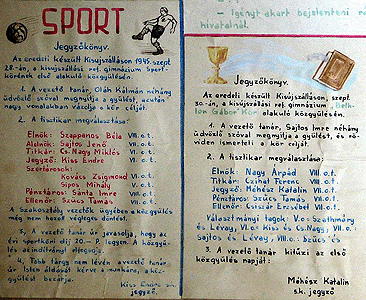 SPORT
Jegyzőkönyv.
Az eredeti készült Kisújszálláson 1945. szept.
28.-án, a kisújszállási ref. gimnázium Sport-
körének első alakuló közgyűlésén.
1. A vezető tanár, Oláh Kálmán néhány
üdvözlő szóval megnyitja a gyűlést, azután
nagy vonalakban vázolja a kör célját.
2. A tisztikar megválasztása:
Elnök: Szappanos Béla VIII. o. t.
Alelnök: Sajtos Jenő VII. o. t.
Titkár: Cs. Nagy Miklós VI. o. t.
Jegyző: Kiss Endre VI. o. t.
Szertárosok:
Kovács Zsigmond VI. o. t.
Sipos Mihály
Pénztáros: Sánta Imre VI. o. t.
Ellenőr: Szűcs Tamás VI. o. t.
A szakosztály vezetők ügyében a közgyűlés
még nem hozott végleges döntést.
3. A vezető tanár úr javasolja, hogy az
évi sportköri díj 20.- P. legyen. A közgyű-
lés az indítványt elfogadja.
4. Több tárgy nem lévén a vezető tanár
úr Isten áldását kérve a munkára, a köz-
gyűlést bezárja.
Kiss Endre s.k.
jegyző
- Igényt akart bejelenteni
hivatalnál.
Jegyzőkönyv.
Az eredeti készült Kisújszálláson, szept.
30.-án, a kisújszállási ref. gimnázium, Beth-
len Gábor Kör alakuló közgyűlésén.
1. A vezető tanár, Sajtos Imre néhány
üdvözlő szóval megnyitja a gyűlést, és rö-
viden ismerteti a kör célját.
2. A tisztikar megválasztása:
Elnök: Nagy Árpád VIII. o. t.
Titkár: Czihat Ferenc VIII. o. t.
Jegyző: Méhész Katalin VII. o. t.
Pénztáros: Szűcs Tamás VI. o. t.
Ellenőr: Csiszár Erzsébet VII. o. t.
Választmányi tagok: V. o.: Szathmáry
és Lévay, VI. o.: Kiss és Cs. Nagy, VII. o.:
Sajtos és Lévay, VIII. o.: Szűcs és
3. A vezető tanár kitűzi az első
közgyűlés napját:
Méhész Katalin
s.k. jegyző